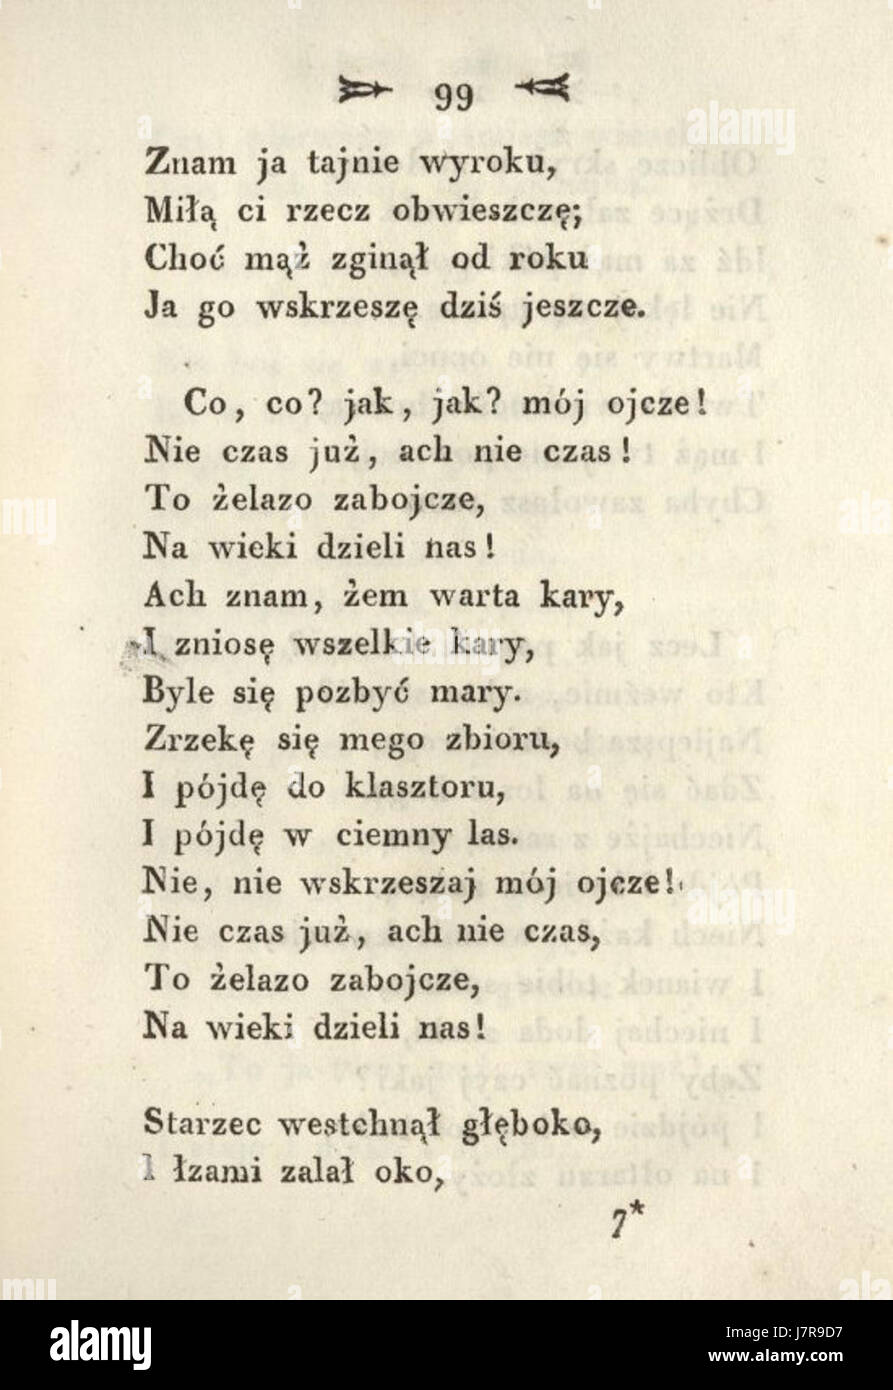 99
Znam ja tajnie wyroku,
Miłą ci rzecz obwieszczę;
Choć mąż zginął od roku
Ja go wskrzeszę dziś jeszcze.
Co, co? jak, jak? mój ojcze!
Nie czas już, ach nie czas!
To żelazo zabojcze,
Na wieki dzieli nas!
Ach znam, żem warta kary,
I zniosę wszelkie kary,
Byle się pozbyć mary.
Zrzekę się mego zbioru,
I pójdę do klasztoru,
I pójdę w ciemny las.
Nie, nie wskrzeszaj mój ojcze!
Nie czas już, ach nie czas,
To żelazo zabojcze,
Na wieki dzieli nas!
Starzec westchnął głęboko,
I łzami zalał oko,
7*
alamy
Image ID: J7R9D7
www.alamy.com